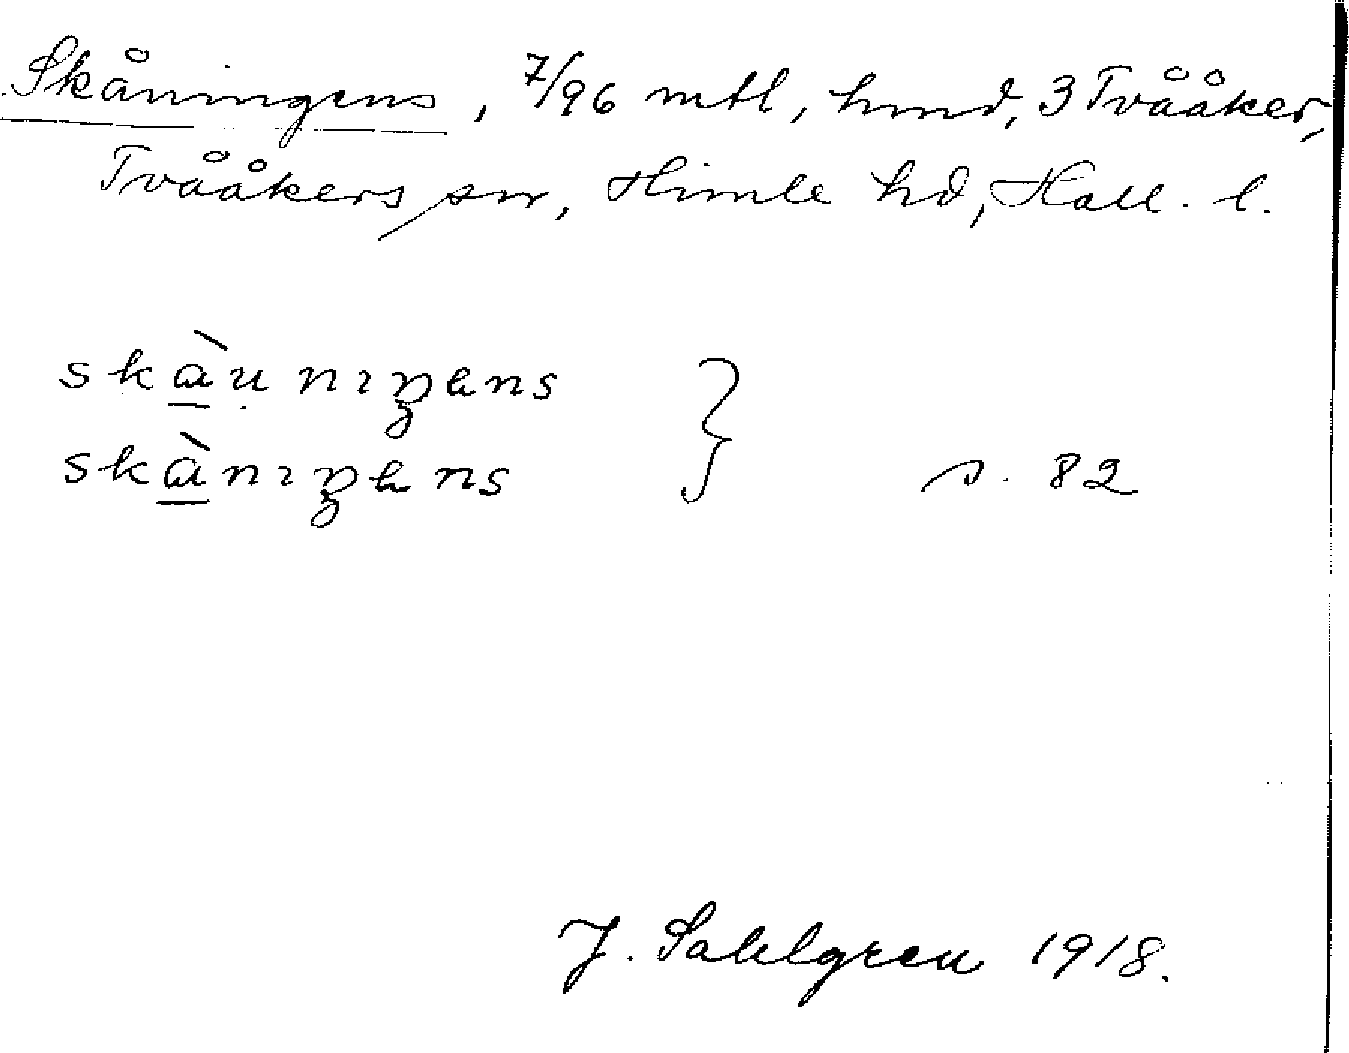 Skåningens, 7/96 mtl, hmd, 3 Tvååker,
Tvååkers sn, Himle hd, Hall. l.
skàu̯nɪŋens
skànɪŋens } s. 82
J. Sahlgren 1918.